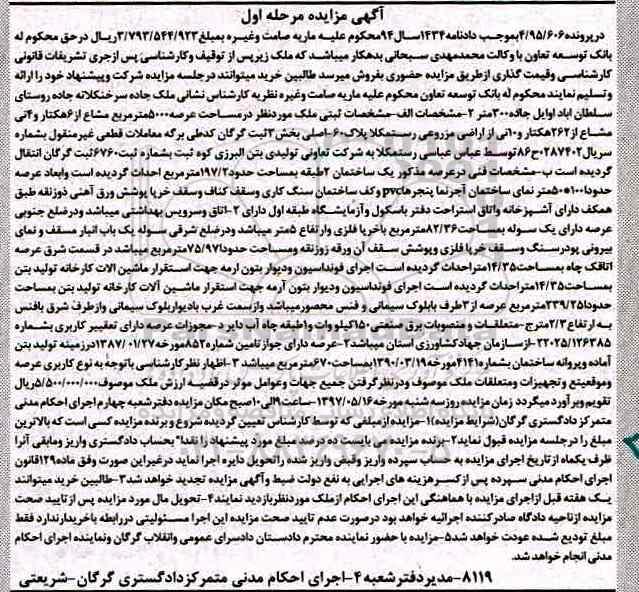 آگهی مزایده مرحله اول
در پرونده ۴/۹۵/۶۰۶ بموجب دادنامه ۱۴۳۴ سال ۹۴ محکوم علیه ماریه صامت وغیره بمبلغ ۳/۷۹۳/۵۴۴/۹۲۳ ریال در حق محکوم له
بانک توسعه تعاون با وکالت محمدمهدی سبحانی بدهکار میباشد که ملک زیر پس از توقیف وکارشناسی پس از جری تشریفات قانونی
کارشناسی و قیمت گذاری از طریق مزایده حضوری بفروش میرسد طالبین خرید میتوانند در جلسه مزایده شرکت و پیشنهاد خود را ارائه
و تسلیم نمایند محکوم له بانک توسعه تعاون محکوم علیه ماریه صامت وغیره نظریه کارشناس نشانی ملک جاده سرخنکلاته جاده روستای
سلطان اباد اوایل جاده ۳۰۰ متر ۲-مشخصات الف-مشخصات ثبتی ملک موردنظر در مساحت عرصه ۵۰۰۰ مترمربع مشاع از ۶ هکتار و ۴ نی
مشاع از ۲۶۲ هکتار و ۱۰ نی از اراضی مزروعی رستمکلا پلاک ۶۰-اصلی بخش ۳ ثبت گرگان کدطی برگه معاملات قطعی غیرمنقول بشماره
سریال ۲۸۷۴۰۲ ح ۸۶ توسط عباس عباسی رستمکلا به شرکت تعاونی تولیدی بتن البرزی کوه ثبت بشماره ثبت ۶۷۶۰ ثبت گرگان انتقال
گردیده است ب-مشخصات فنی در عرصه مذکور یک ساختمان ۲ طبقه بمساحت حدود ۱۹۷/۲ مترمربع احداث گردیده است وابعاد عرصه
حدودا ۱۰۰*۵۰ متر نمای ساختمان آجرنما پنجرها pvc وکف ساختمان سنگ کاری وسقف کناف وسقف خرپا پوشش ورق آهنی ذوزنقه طبق
همکف دارای آشپزخانه واتاق استراحت دفتر باسکول و آزمایشگاه طبقه اول دارای ۲-اتاق وسرویس بهداشتی میباشد ودرضلع جنوبی
عرصه دارای یک سوله بمساحت ۸۲/۳۶ مترمربع باخرپا فلزی وارتفاع ۵ متر میباشد ودرضلع شرقی سوله یک باب انبار مسقف و نمای
بیرونی پودرسنگ وسقف خرپا فلزی وپوشش سقف آن ورقه زوزنقه ومساحت حدودا ۷۵/۹۷ مترمربع میباشد در قسمت شرق عرصه
اتاقک چاه بمساحت ۱۴/۳۵ متراحداث گردیده است اجرای فونداسیون ودیوار بتون ارمه جهت استقرار ماشین الات کارخانه تولید بتن
بمساحت ۱۴/۳۵ متراحداث گردیده است اجرای فونداسیون ودیوار بتون آرمه جهت استقرار ماشین آلات کارخانه تولید بتن بمساحت
حدودا ۲۳۹/۲۵ مترمربع عرصه از ۳ طرف بابلوک سیمانی و فنس محصورمیباشد وازسمت غرب بادیواربلوک سیمانی وازطرف شرق بافنس
به ارتفاع ۲/۳ مترج-متعلقات و منصوبات برق صنعتی ۱۵۰ کیلو وات و ۱ طبقه چاه آب دایر د-مجوزات عرصه دارای تغییر کاربری بشماره
۲۲۰۲۵/۱۲۶۳۸۵-از سازمان جهادکشاورزی استان میباشد ۲-عرصه دارای جواز تامین شماره ۸۵۲ مورخه ۱۳۸۷/۰۱/۲۷ در زمینه تولید بتن
آماده وپروانه ساختمان بشماره ۴۱۴۱ مورخه ۱۳۹۰/۰۳/۱۹ بمساحت ۶۷۰ مترمربع میباشد ۳-اظهار نظر کارشناسی باتوجه به نوع کاربری عرصه
وموقعیتع و تجهیزات ومتعلقات ملک موصوف ودرنظرگرفتن جمیع جهات وعوامل موثر در قضیه ارزش ملک موصوف ۵/۵۰۰/۰۰۰/۰۰۰ ریال
تقویم وبرآورد میگردد زمان مزایده روز سه شنبه مورخه ۱۳۹۷/۰۵/۱۶-ساعت ۹ الی ۱۰ صبح مکان مزایده دفترشعبه چهارم اجرای احکام مدنی
متمرکز دادگستری گرگان (شرایط مزایده) ۱-مزایده از مبلغی که توسط کارشناس تعیین گردیده شروع و برنده مزایده کسی است که بالاترین
مبلغ را در جلسه مزایده قبول نماید ۲-برنده مزایده می بایست ده درصد مبلغ مورد پیشنهاد را نقدا" بحساب دادگستری واریز ومابقی آنرا
ظرف یکماه از تاریخ اجرای مزایده به حساب سپرده واریز وقبض واریز شده راتحویل دایره اجرا نماید درغیر این صورت وفق ماده ۱۲۹ قانون
اجرای احکام مدنی سپرده پس از کسر هزینه های اجرایی به نفع دولت ضبط وآگهی مزایده تجدید خواهد شد ۳-طالبین خرید میتوانند
یک هفته قبل ازاجرای مزایده با هماهنگی این اجرای احکام ازملک موردنظر بازدید نمایند ۴-تحویل مال مورد مزایده پس از تایید صحت
مزایده ازناحیه دادگاه صادرکننده اجرائیه خواهد بود درصورت عدم تایید صحت مزایده این اجرا مسئولیتی دررابطه باخریدارندارد فقط
مبلغ تودیع شده عودت خواهد شد ۵-مزایده با حضور نماینده محترم دادستان دادسرای عمومی وانقلاب گرگان ونماینده اجرای احکام
مدنی انجام خواهد شد.
۸۱۱۹-مدیر دفتر شعبه ۴-اجرای احکام مدنی متمرکز دادگستری گرگان-شریعتی